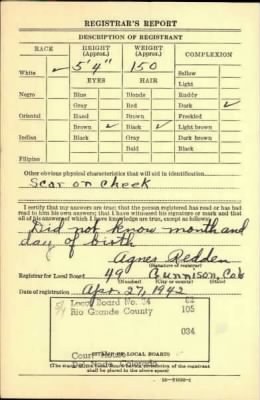 REGISTRAR'S REPORT
DESCRIPTION OF REGISTRANT
RACE HEIGHT (Approx.) WEIGHT (Approx.) COMPLEXION
5'4" 150
White ✓ Sallow
EYES HAIR Light
Negro Blue Blonde Ruddy
Gray Red Dark ✓
Oriental Hazel Brown Freckled
Brown ✓ Black ✓ Light brown
Indian Black Gray Dark brown
Bald Black
Filipino
Other obvious physical characteristics that will aid in identification
Scar on cheek
I certify that my answers are true; that the person registered has read or has had
read to him his own answers; that I have witnessed his signature or mark and that
all of his answers of which I have knowledge are true, except as follows:
Did not know month and
day of birth
Agnes Redden
(Signature of registrar)
Registrar for Local Board 49 Gunnison, Colo
(Number) (City or county) (State)
Date of registration Apr. 27, 1942
Local Board No. 24 62
Rio Grande County 105
034
Court House
Del Norte, Colorado
(STAMP OF LOCAL BOARD)
(The stamp of the Local Board having jurisdiction of the registrant
shall be placed in the above space)